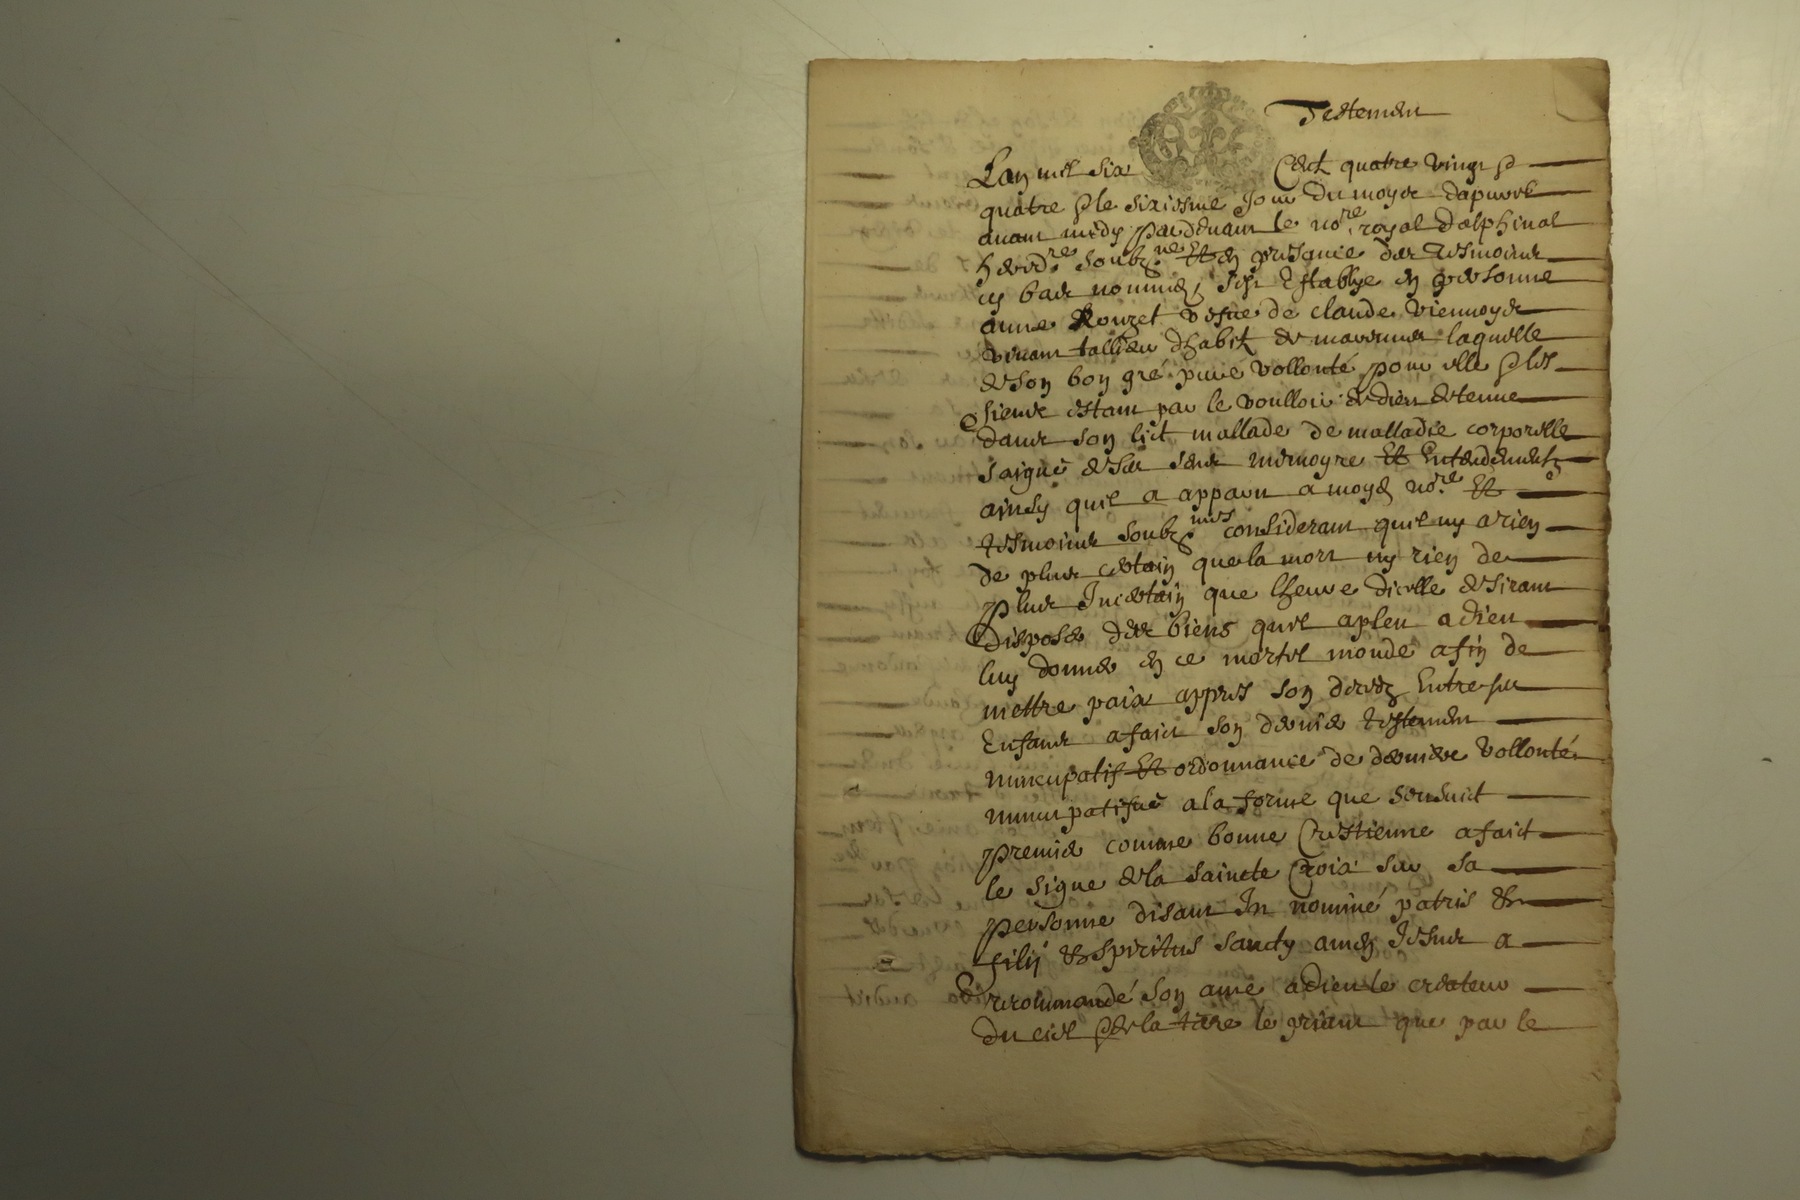 Testement
Lan mil six Cent quatre vingt &
quatre & le sixiesme Jour du moys dapvril
avant midy pardevant le no.re royal dalphinal
heredre soubz.ne Et en presance des tesmoins
cy bas nommés, sest Establye en personne
anne Rouzet vefve de claude viennoys
vivant tallieur dhabit de laquelle
de son bon gré pure vollonté pour elle & les
siens estant par le voulloir de dieu detenue
dans son lict mallade de malladie corporelle
saigne de ses sens memoyre Et Entendement
ainsy quil a apparu a moyd no.re Et
tesmoins soubz.nes considerant quil ny a rien
de plus certain que la mort ny rien de
plus Incertain que lheure dicelle desirant
disposer des biens quil a pleu a dieu
luy donner en ce mortel monde afin de
mettre paix appres son decedz Entre ses
Enfans a faict son dernier testement
nuncupatif Et ordonnance de derniere vollonté
nuncupatifve a la forme que sensuict
premier comme bonne Crestienne a faict
le signe de la saincte Croix sur sa
personne disant In nominé patris &
filij & spiritus sancty amen Jesus a
recommandé son ame a dieu le createur
du ciel & de la terre le priant que par le